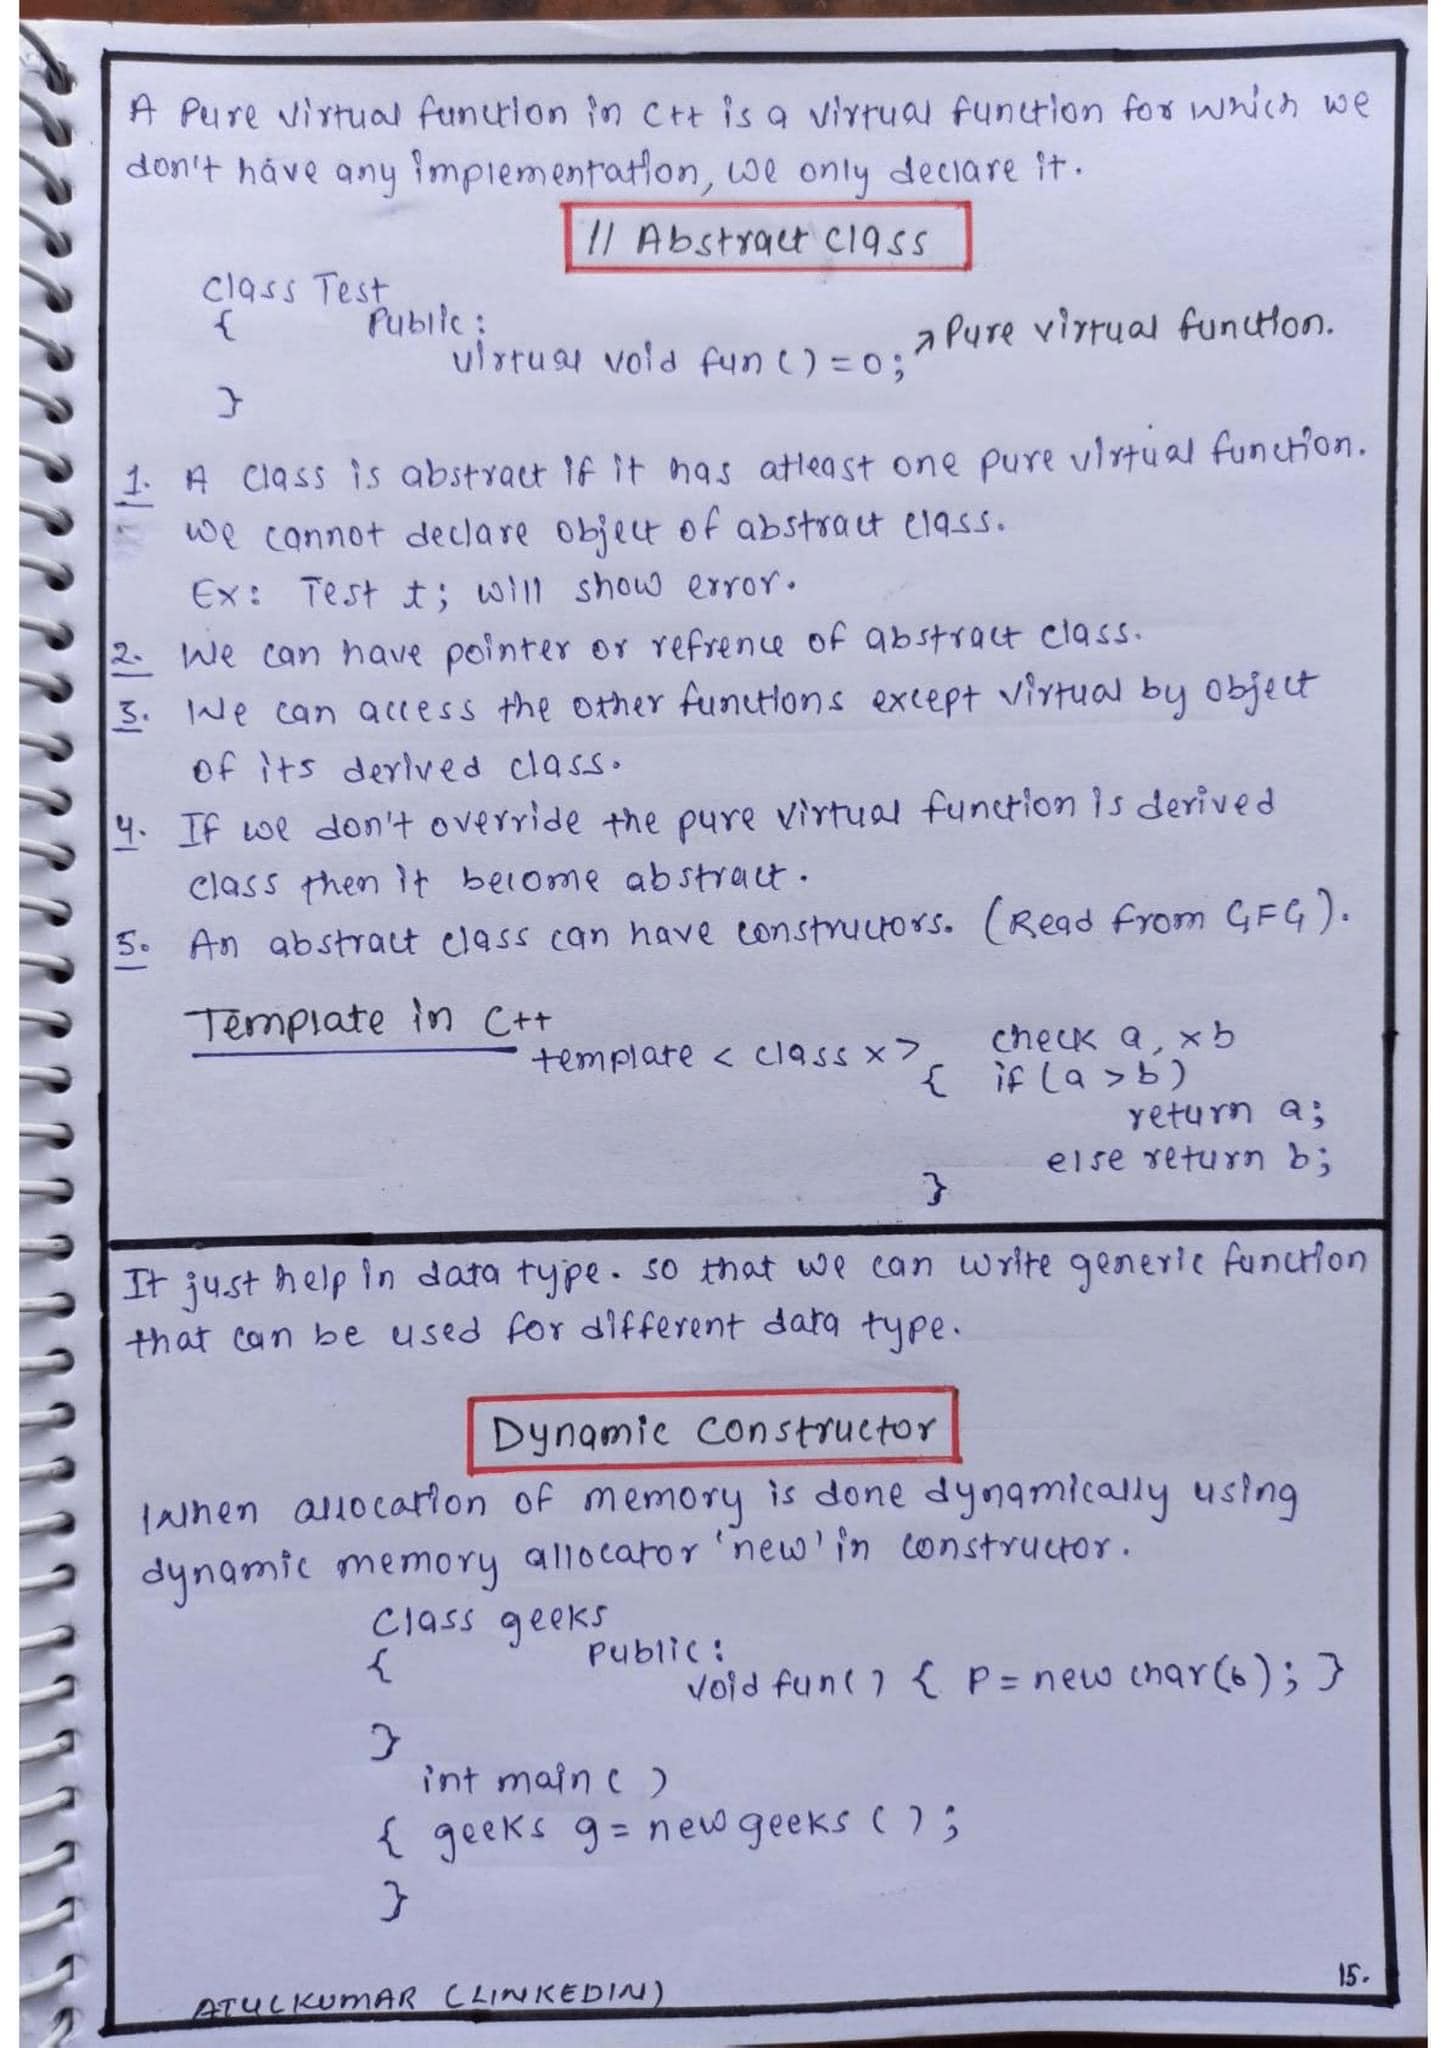 A Pure virtual function in C++ is a virtual function for which we
don't have any implementation, we only declare it.
// Abstract class
class Test
{ Public:
virtual void fun() = 0; ↗ Pure virtual function.
}
1. A class is abstract if it has atleast one pure virtual function.
we cannot declare object of abstract class.
Ex: Test t; will show error.
2. We can have pointer or refrence of abstract class.
3. We can access the other functions except virtual by object
of its derived class.
4. If we don't override the pure virtual function is derived
class then it become abstract.
5. An abstract class can have constructors. (Read from GFG).
Template in C++
template < class x > check a, x b
{ if (a > b)
return a;
else return b;
}
It just help in data type. so that we can write generic function
that can be used for different data type.
Dynamic constructor
When allocation of memory is done dynamically using
dynamic memory allocator 'new' in constructor.
class geeks
{ Public:
void fun() { P = new char(6); }
}
int main ( )
{ geeks g = new geeks ( );
}
ATULKUMAR (LINKEDIN)
15.